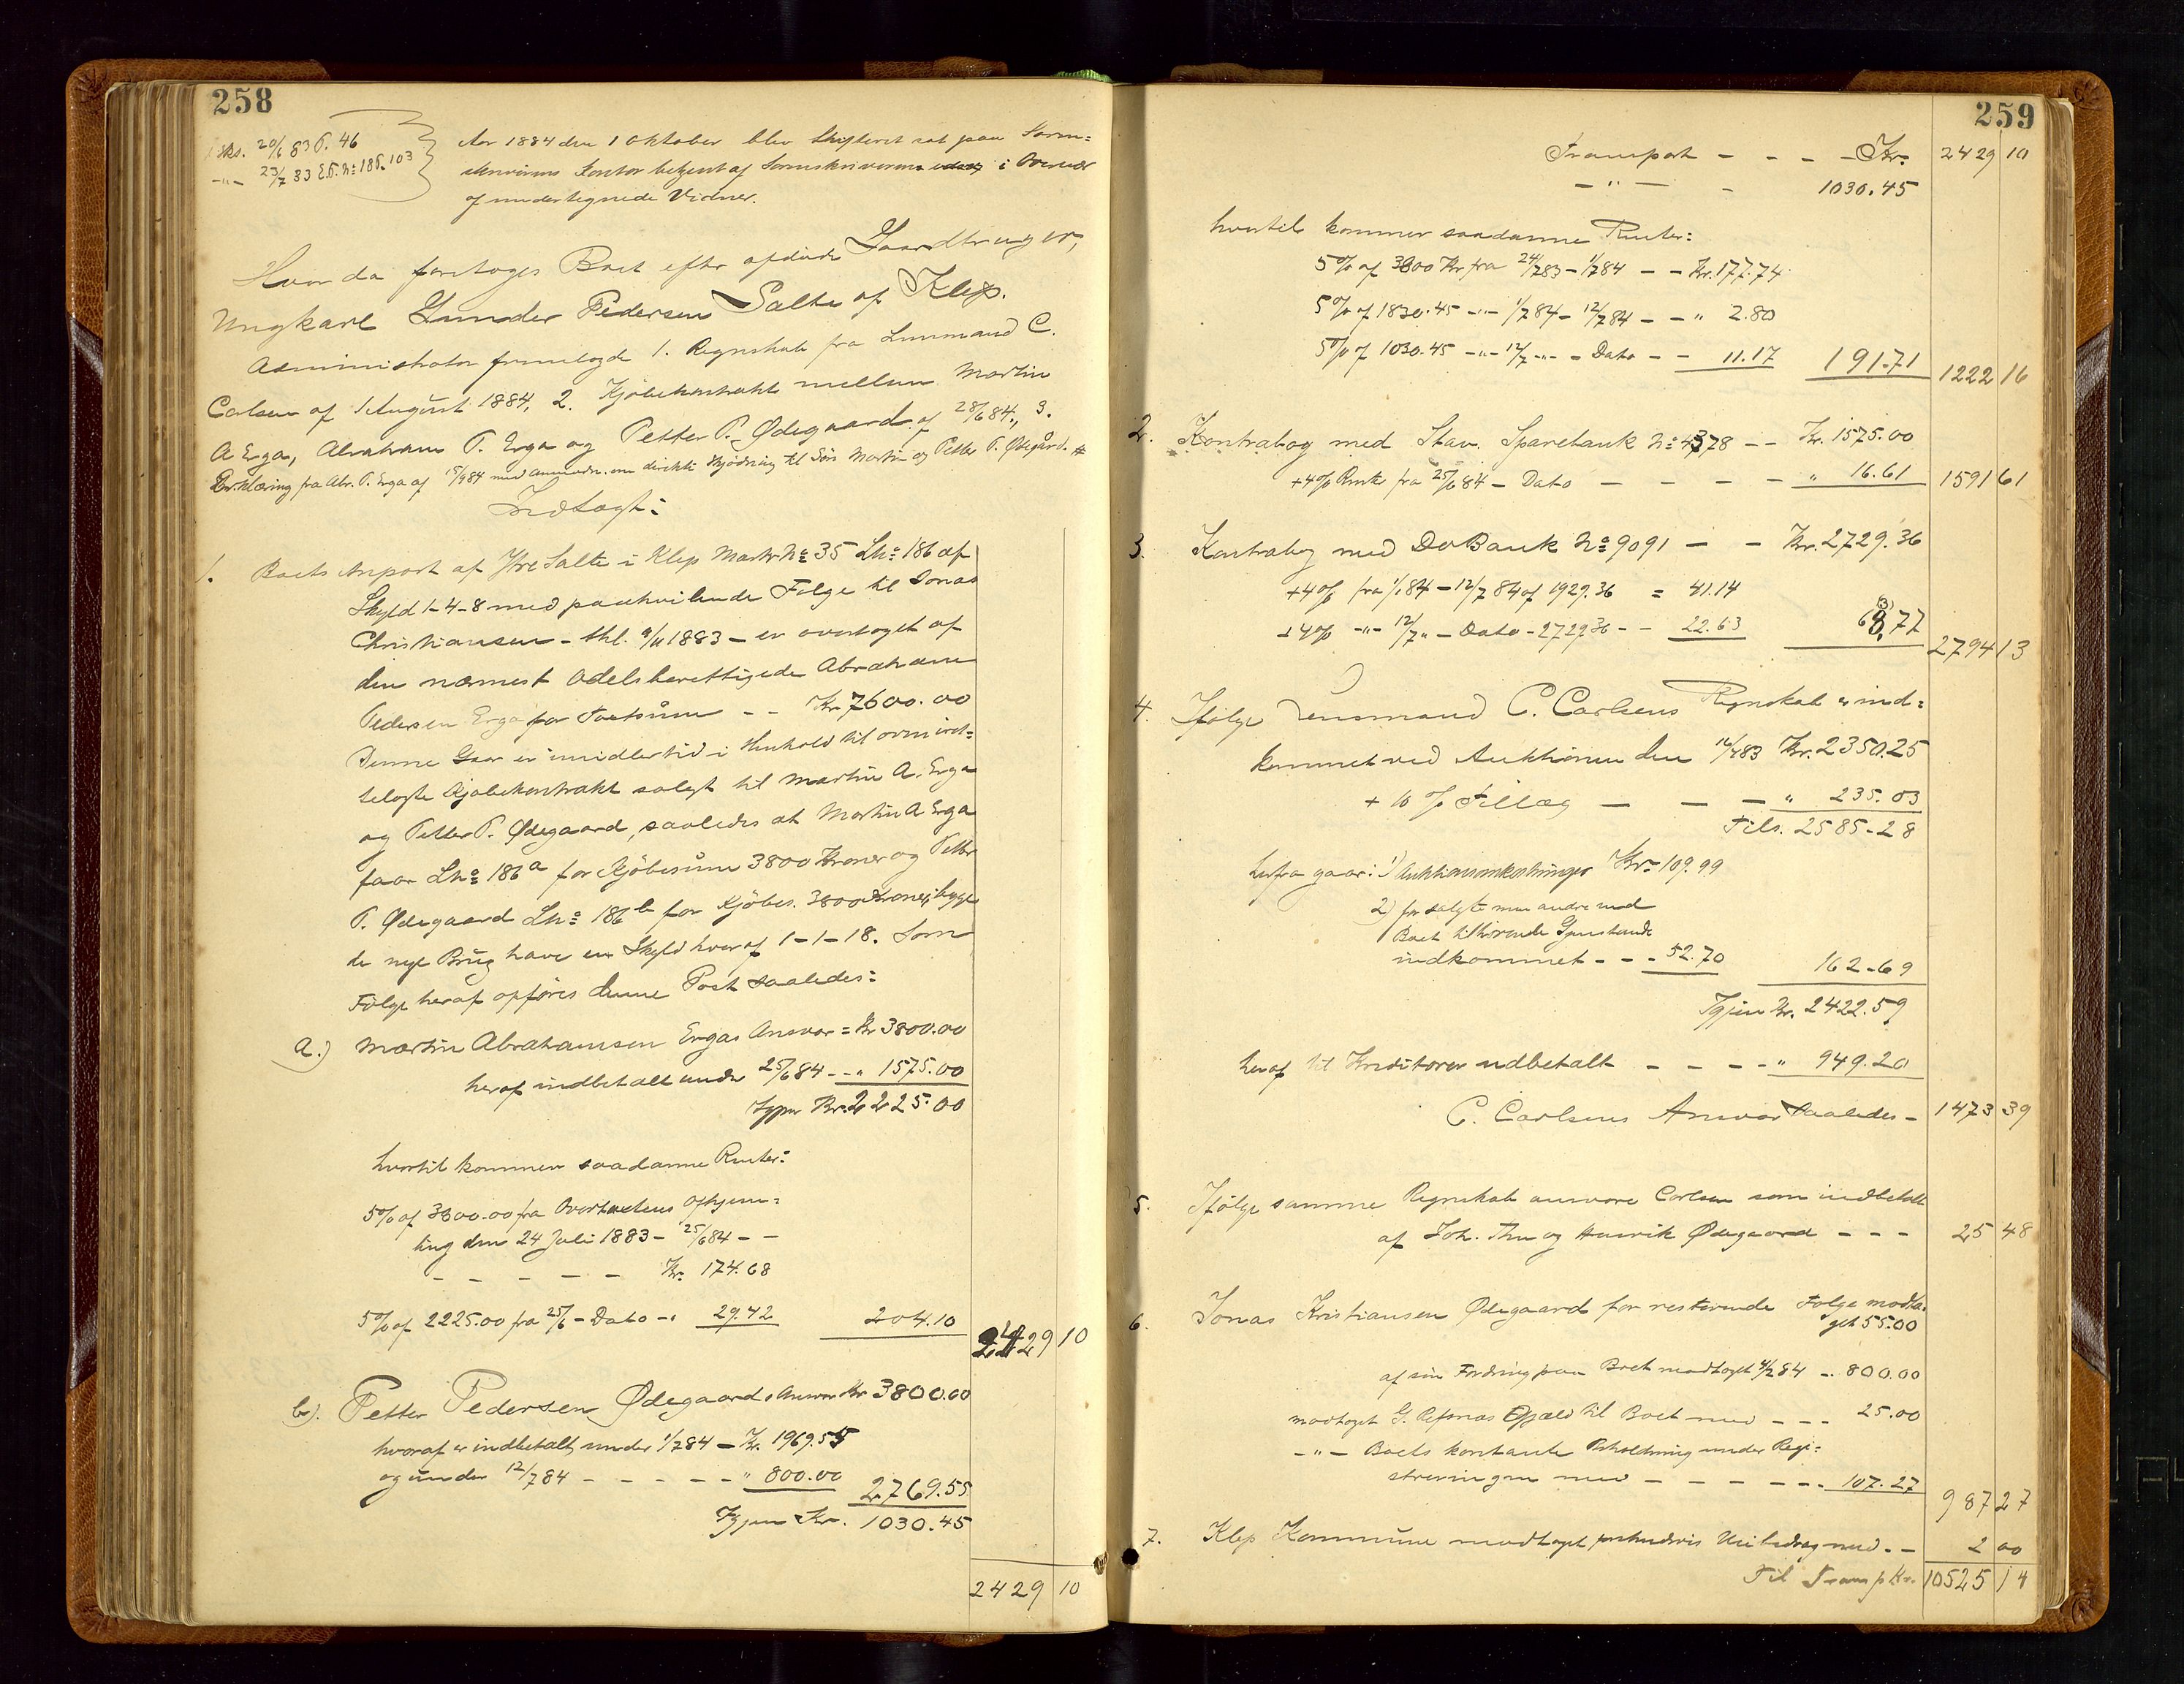 258
Sks. 20/6 83 P. 46
-"- 23/7 83 E.P. No 18 P. 103
Aar 1884 den 1 Oktober blev Skifteret sat paa Soren=
skriverens Kontor betjent af Sorenskriveren i Overvær
af undertegnede Vidner.
Hvor da foretoges Boet efter afdøde Gaardbruger,
Ungkarl Gunder Pedersen Salte af Klep.
Administrator fremlagde 1. Regnskab fra Lensmand C.
Carlsen af 1 August 1884, 2. Kjøbekontrakt mellem Martin
A Erga, Abraham P. Erga og Petter P. Ødegaard af 28/6 84., 3.
Erklæring fra Abr. P. Erga af 15/9 84 med Anmodn. om direkte Skjødning til Søn Martin og Petter P. Ødegård.
Indtægt:
1. Boets Anpart af Ytre Salte i Klep Matr No 35 Lno 186 af
Skyld 1-4-8 med paahvilende Følge til Jonas
Christiansen - thl. 9/11 1883 - er overtaget af
den nærmest Odelsberettigede Abraham
Pedersen Erga for Taxtsum - - Kr. 7600.00
Denne Gaar er imidlertid i Henhold til oveniret=
telagte Kjøbekontrakt solgt til Martin A. Erga
og Petter P. Ødegaard, saaledes at Martin A Erga
faar Lno 186 a for Kjøbesum 3800 Kroner og Petter
P. Ødegaard Lno 186 b for Kjøbes. 3800 Kroner; begge
de nye Brug have en Skyld hver af 1-1-18. Som
Følge heraf opføres denne Post saaledes:
a.) Martin Abrahamsen Ergas Ansvar = Kr 3800.00
heraf indbetalt under 25/6 84 - - " 1575.00
Igjen Kr. 2225.00
hvortil kommer saadanne Renter:
5% af 3800.00 fra Overtaxtens Afhjem=
ling den 24 Juli 1883 - 25/6 84 - -
- - - - - Kr. 174.68
5% af 2225.00 fra 25/6 - Dato - " 29.42 204.10
2429 10
b). Petter Pedersen Ødegaards Ansvar Kr 3800.00
hvoraf er indbetalt under 1/7 84 - Kr. 1969.55
og under 12/7 84 - - - - - " 800.00 2769.55
Igjen Kr. 1030.45
2429 10
259
Transport - - - - Kr. 2429 10
- " - - 1030.45
hvortil kommer saadanne Renter:
5% af 3800 Kr fra 24/7 83 - 1/7 84 - - Kr. 177.74
5% af 1830.45 -"- 1/7 84 - 12/7 84 - - " 2.80
5% af 1030.45 -"- 12/7 -"- - Dato - - 11.17 191.71 1222 16
2. Kontrabog med Stav. Sparebank No 4378 - - Kr. 1575.00
+ 4% Rente fra 25/6 84 - Dato - - - - " 16.61 1591 61
3. Kontrabog med Do Bank No 9091 - - Kr. 2729.36
+ 4% fra 1/1 84 - 12/7 84 af 1929.36 = 41.14
+ 4% -"- 12/7 " - Dato - 2729.36 - - 22.63 63,77
2794 13
4. Ifølge Lensmand C. Carlsens Regnskab er ind=
kommet ved Auktionen den 16/7 83 Kr. 2350.25
+ 10% Tillæg - - - " 235.03
Tils. 2585.28
herfra gaar: 1) Auktionsomkostninger Kr. 109.99
2) for solgte men andre end
Boet tilhørende Gjenstande
indkommet - - - 52.70 162.69
Igjen Kr. 2422.59
heraf til Kreditorer udbetalt - - - - " 949.20
C. Carlsens Ansvar saaledes - 1473 39
5. Ifølge samme Regnskab ansvarer Carlsen som indbetalt
af Joh. Thu og Henrik Ødegaard - - - 25 48
6. Jonas Kristiansen Ødegaard for resterende Følge modta=
get 55.00
af sin Fordring paa Boet modtaget 4/2 84 - 800.00
modtaget G. Refsnæs Gjæld til Boet med - - - 25.00
- " - Boets kontante Beholdning under Regi=
streringen med - - - - - 107.27
987 27
7. Klep Kommune modtaget Veibidrag med - - 2 00
Til Transp Kr. 10525 14